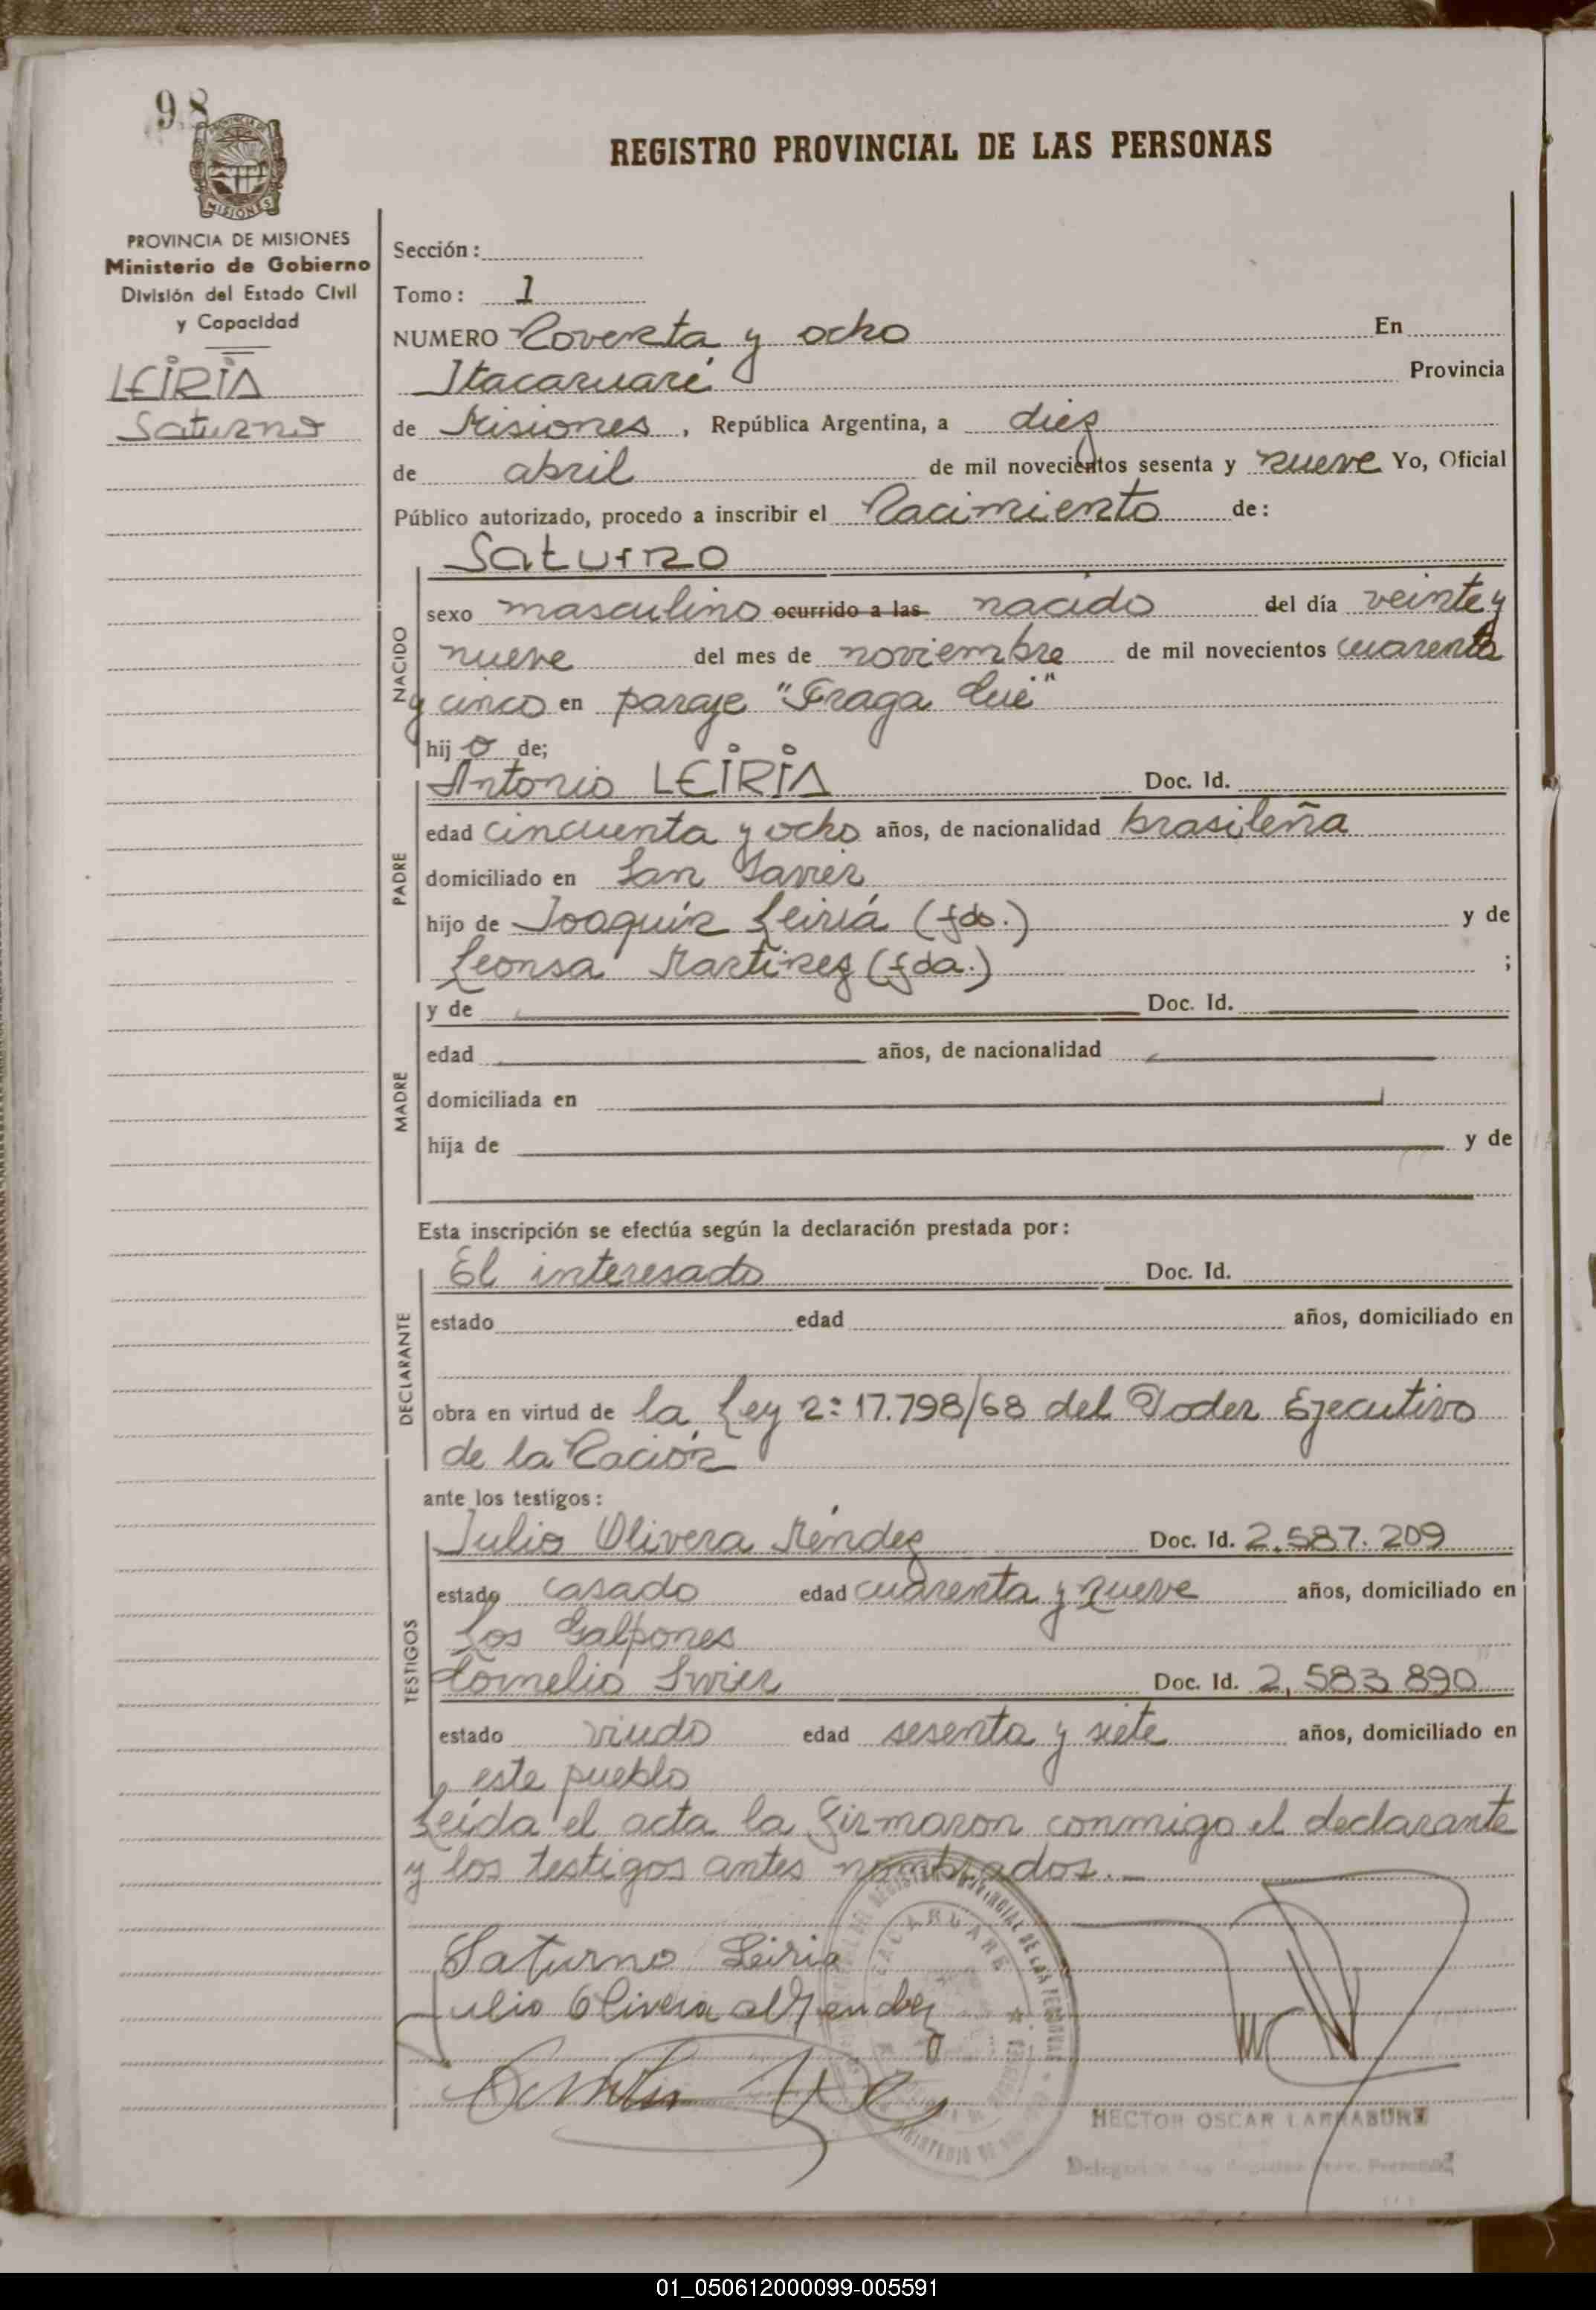 98
PROVINCIA DE
MISIONES
REGISTRO PROVINCIAL DE LAS PERSONAS
PROVINCIA DE MISIONES
Ministerio de Gobierno
División del Estado Civil
y Capacidad
LEIRIA
Saturno
Sección:
Tomo: 1
NUMERO Noventa y ocho En
Itacaruaré Provincia
de Misiones, República Argentina, a diez
de abril de mil novecientos sesenta y nueve Yo, Oficial
Público autorizado, procedo a inscribir el Nacimiento de:
Saturno
NACIDO
sexo masculino ocurrido a las nacido del día veinte y
nueve del mes de noviembre de mil novecientos cuarenta
y cinco en paraje "Fraga Cué"
hijo de;
PADRE
Antonio LEIRIA Doc. Id.
edad cincuenta y ocho años, de nacionalidad brasileña
domiciliado en San Javier
hijo de Joaquín Leiriá (fdo.) y de
Leonsa Martinez (fda.) ;
MADRE
y de Doc. Id.
edad años, de nacionalidad
domiciliada en
hija de y de
Esta inscripción se efectúa según la declaración prestada por:
DECLARANTE
El interesado Doc. Id.
estado edad años, domiciliado en
obra en virtud de la Ley n: 17.798/68 del Poder Ejecutivo
de la Nación
ante los testigos:
TESTIGOS
Julio Olivera Méndez Doc. Id. 2.587.209
estado casado edad cuarenta y nueve años, domiciliado en
Los Galpones
Cornelio Doc. Id. 2,583.890
estado viudo edad sesenta y siete años, domiciliado en
este pueblo
Leída el acta la firmaron conmigo el declarante
y los testigos antes nombrados.—
Saturno Leiria
Julio Olivera Mendez
ITACARUARE
HECTOR OSCAR LARRABURE
01_050612000099-005591